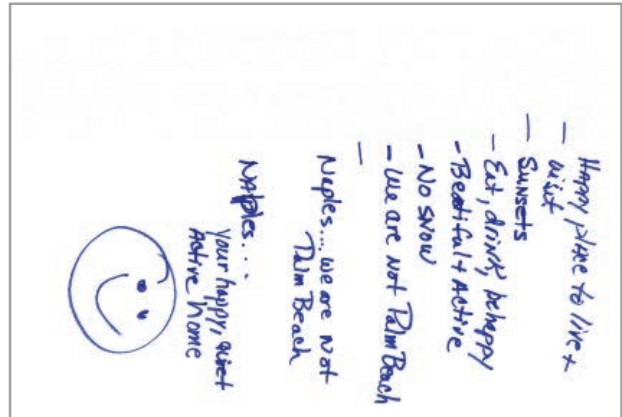 - Happy place to live +
visit
- Sunsets
- Eat, drink, be happy
- Beatiful + Active
- No snow
- We are not Palm Beach
-
Naples.... we are not
Palm Beach
Naples. . .
your happy, quiet
Active home